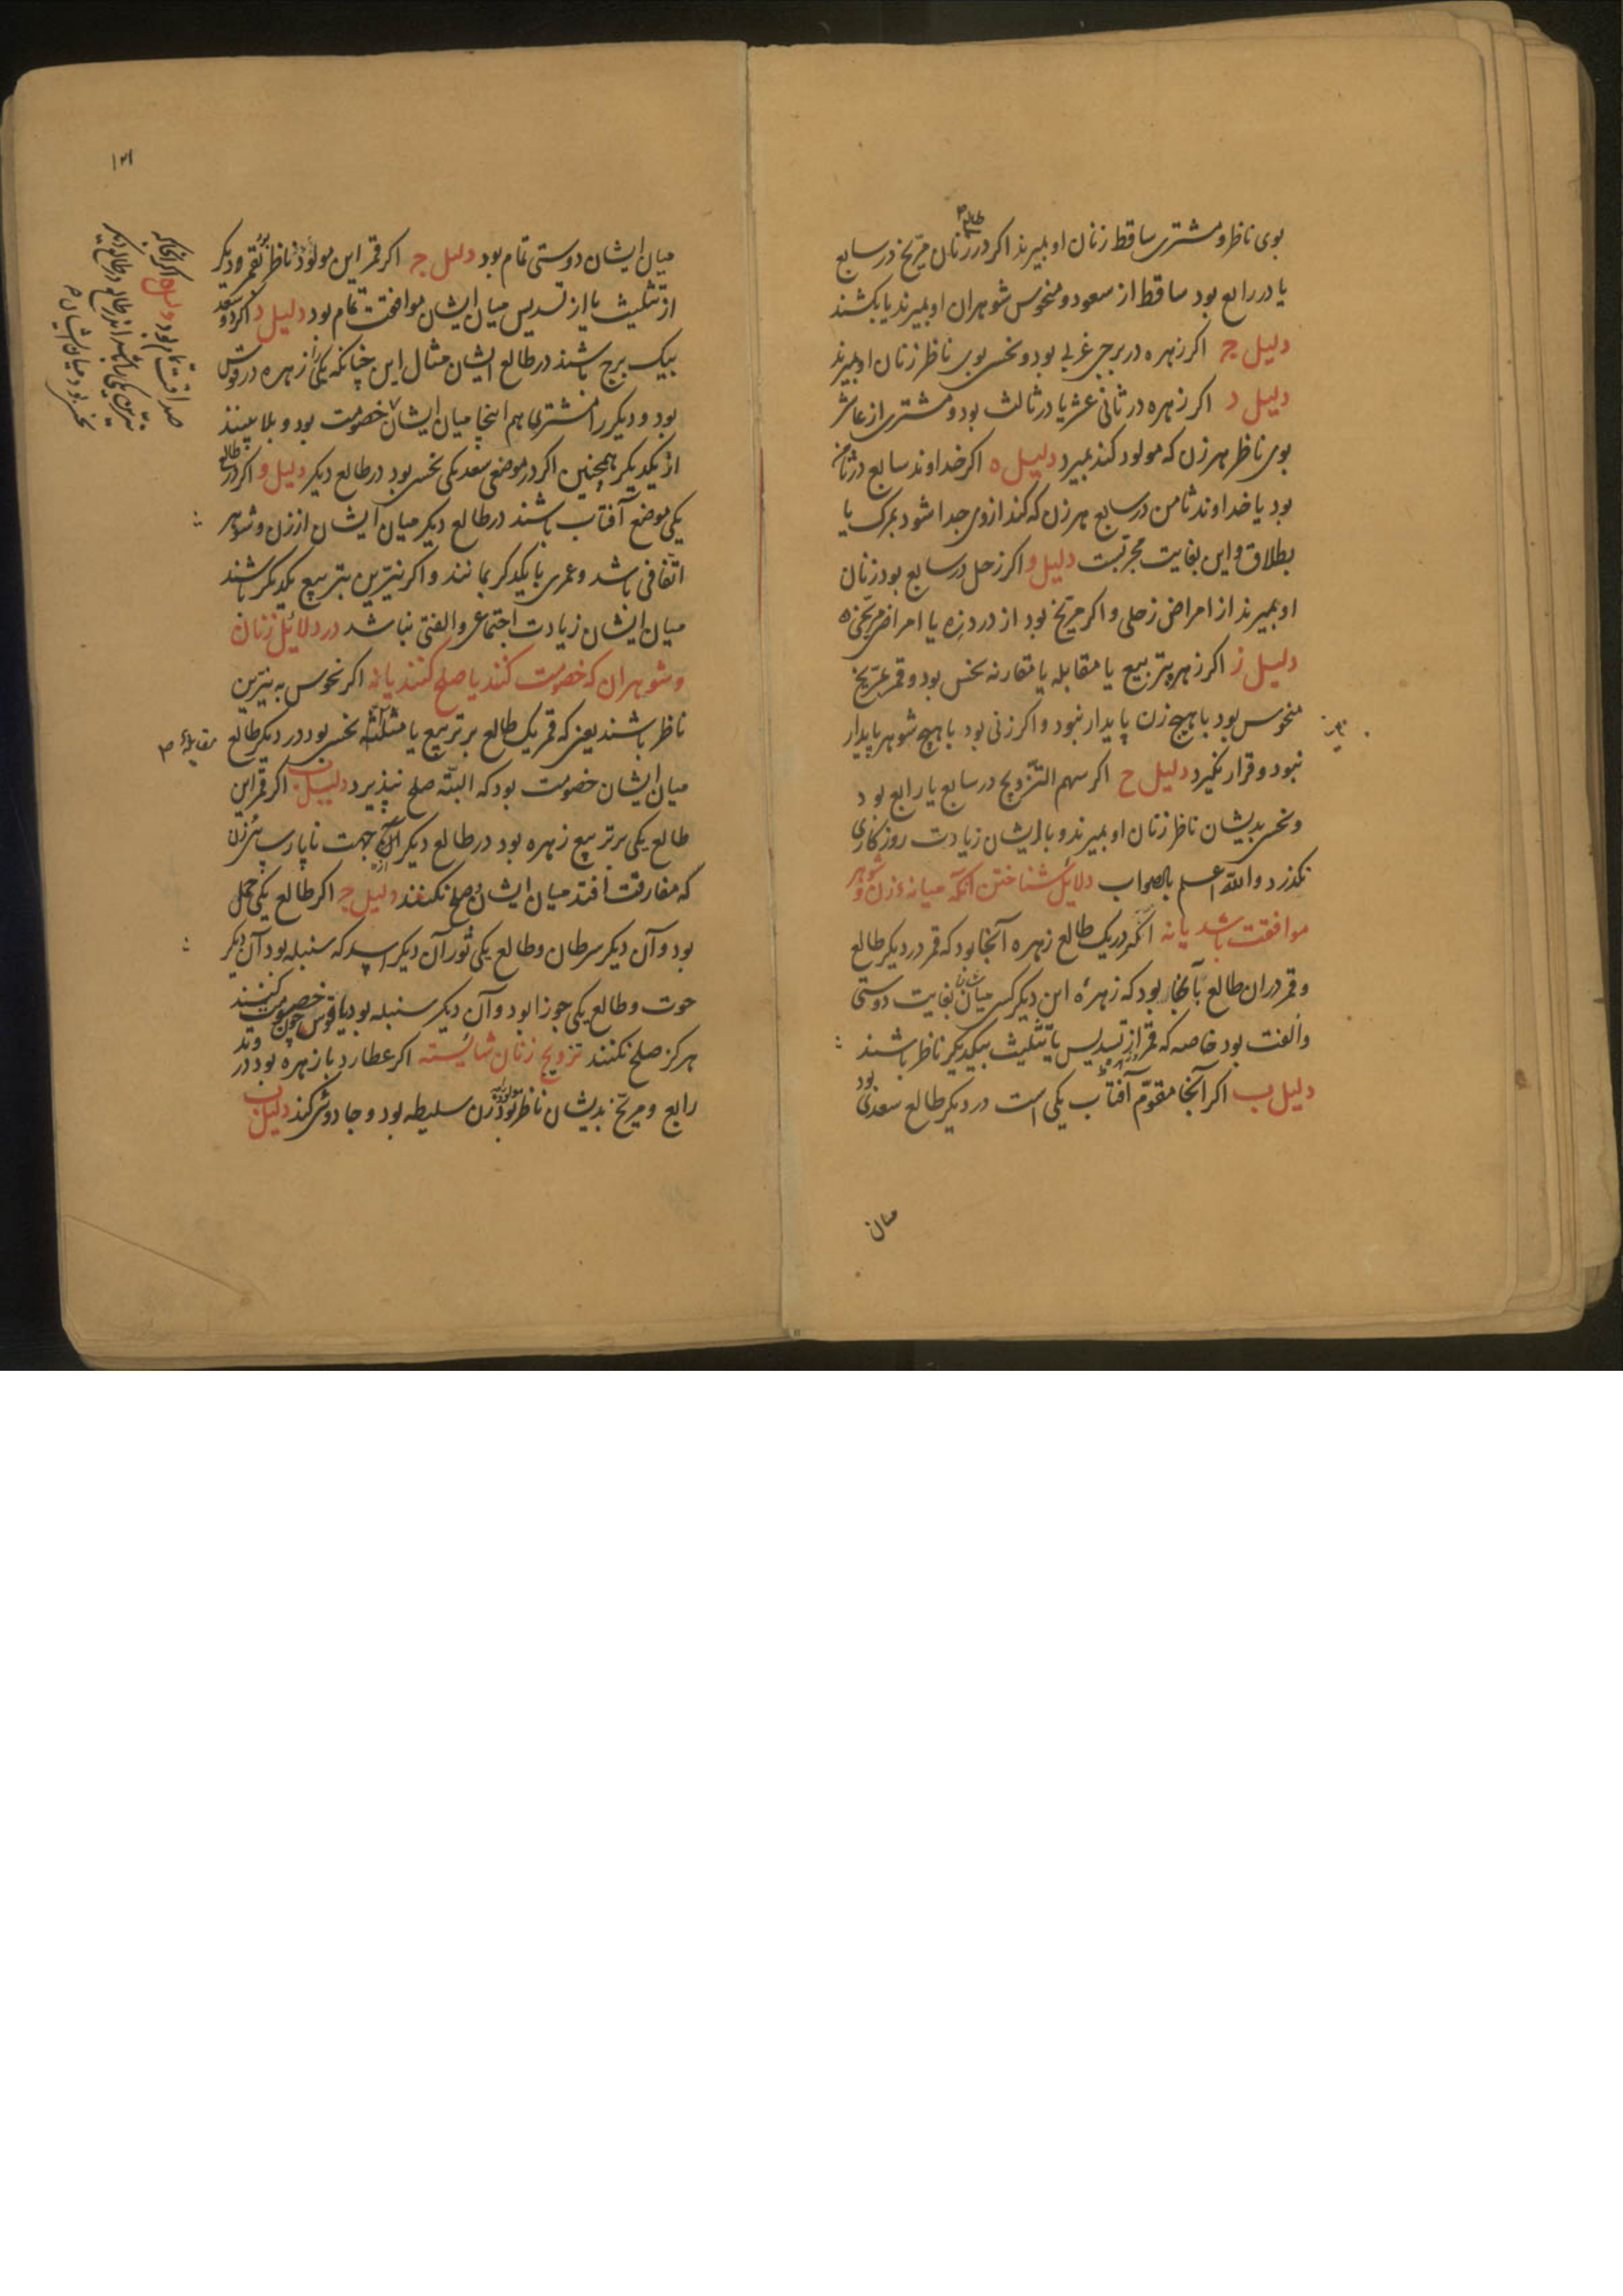 بوی ناظر و مشتری ساقط زنان او بمیرند اکر در طالع زنان مریخ در سابع
یا در رابع بود ساقط از سعود و منحوس شوهران او بمیرند یا بکشند
دلیل ج اکر زهره در برجی غربی بود و نحس بوی ناظر زنان او بمیرند
دلیل د اکر زهره در ثانی عشر یا در ثالث بود و مشتری از عاشر
بوی ناظر هر زن که مولود کند بمیرد دلیل ه اکر خداوند سابع در ثامن
بود یا خداوند ثامن در سابع هر زن که کند ازوی جدا شود بمرک یا
بطلاق و این بغایت مجربست دلیل و اکر زحل در سابع بود زنان
او بمیرند از امراض زحلی و اکر مریخ بود از درد زه یا امراض مریخی ه
دلیل ز اکر زهره بتربیع یا مقابله یا مقارنه نحس بود و قمر بمریخ
منحوس بود با هیچ زن پایدار نبود و اکر زنی بود با هیچ شوهر پایدار
نبود و قرار نکیرد دلیل ح اکر سهم التزویج در سابع یا رابع بود
و نحس بدیشان ناظر زنان او بمیرند و با ایشان زیادت روزکاری
نکذرد والله اعلم بالصواب دلایل شناختن آنکه میانهٔ زن و شوهر
موافقت باشد یا نه آنکه در یک طالع زهره آنجا بود که قمر در دیکر طالع
و قمر در ان طالع بآنجا بود که زهرهٔ این دیکر کس میانشان بغایت دوستی
و الفت بود خاصه که قمر از تسدیس یا تثلیث بیکدیکر ناظر باشند
دلیل ب اکر آنجا مقوم آفتاب یکی است در دیکر طالع سعدی بود
میان
۱۲۱
میان ایشان دوستی تمام بود دلیل ج اکر قمر این مولود ناظر بود بقمر دیکر
از تثلیث یا از تسدیس میان ایشان موافقت تمام بود دلیل د اکر دو سعد
بیک برج باشند در طالع ایشان مثال این چنانکه یکی را زهره در قوس
بود و دیکر را مشتری هم اینجا میان ایشان خصومت بود و بلا بینند
از یکدیکر همچنین اکر در موضع سعد یکی نحس بود در طالع دیکر دلیل و اکر در طالع
یکی موضع آفتاب باشند در طالع دیکر میان ایشان از زن و شوهر
اتفاقی باشد و عمری با یکدکر بمانند و اکر نیّرین بتربیع یکدیکر باشند
میان ایشان زیادت اجتماعی و الفتی نباشد در دلائل زنان
و شوهران که خصومت کنند یا صلح کنند یا نه اکر نحوس به نیرین
ناظر باشند یعنی که قمر یک طالع بر تربیع یا مثلثه نحس بود در دیکر طالع
مقابله م
میان ایشان خصومت بود که البته صلح نپذیرد دلیل ب اکر قمر این
طالع یکی بر تربیع زهره بود در طالع دیکر جهت ناپارسائی زن
که مفارقت افتد میان ایشان و صلح نکنند دلیل ج اکر طالع یکی حمل
بود و آن دیکر سرطان و طالع یکی ثور آن دیکر اسد که سنبله بود آن دیکر
حوت و طالع یکی جوزا بود و آن دیکر سنبله بود یا قوس چون خصومت کنند
هرکز صلح نکنند تزویج زنان شائسته اکر عطارد با زهره بود در وتد
رابع و مریخ بدیشان ناظر بود زن سلیطه بود و جادوئی کند دلیل ب
صداقت تمام بود دلیل ه اکر آنجا که
نیرین یکی باشند اندر طالع در طالع دیکر
نحس بود میان ایشان م